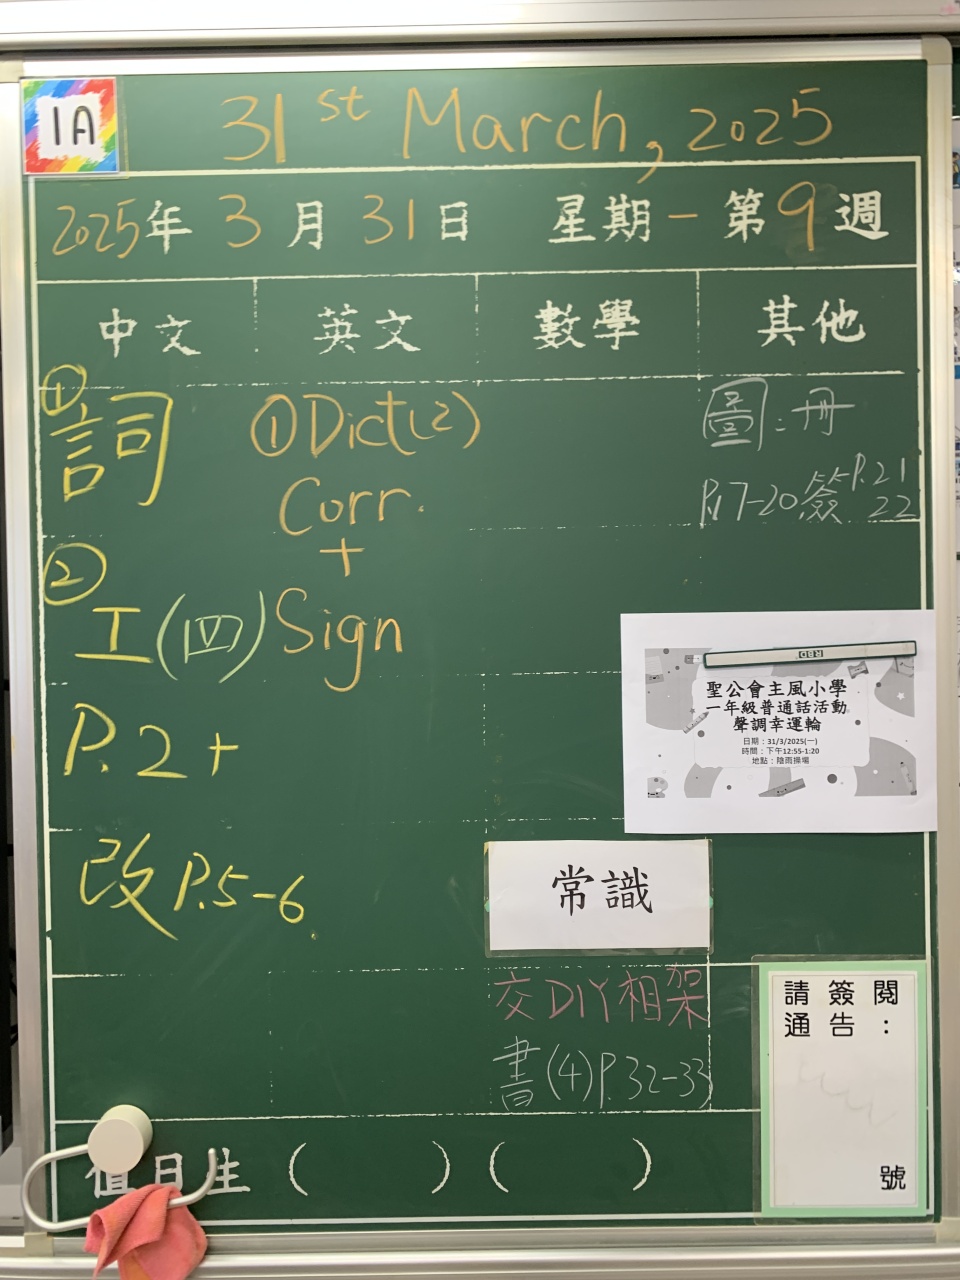 1A
31st March, 2025
2025年 3月 31日 星期一 第9週
中文 英文 數學 其他
① 詞
② 工(四)
P.2+
改 P.5-6
① Dict(2)
Corr.
+
Sign
圖:冊
P.17-20簽P.21
22
RBD
聖公會主風小學
一年級普通話活動
聲調幸運輪
日期：31/3/2025(一)
時間：下午12:55-1:20
地點：陰雨操場
常識
交DIY相架
書(4)P.32-33
請簽閱
通告：
號
值日生 ( ) ( )